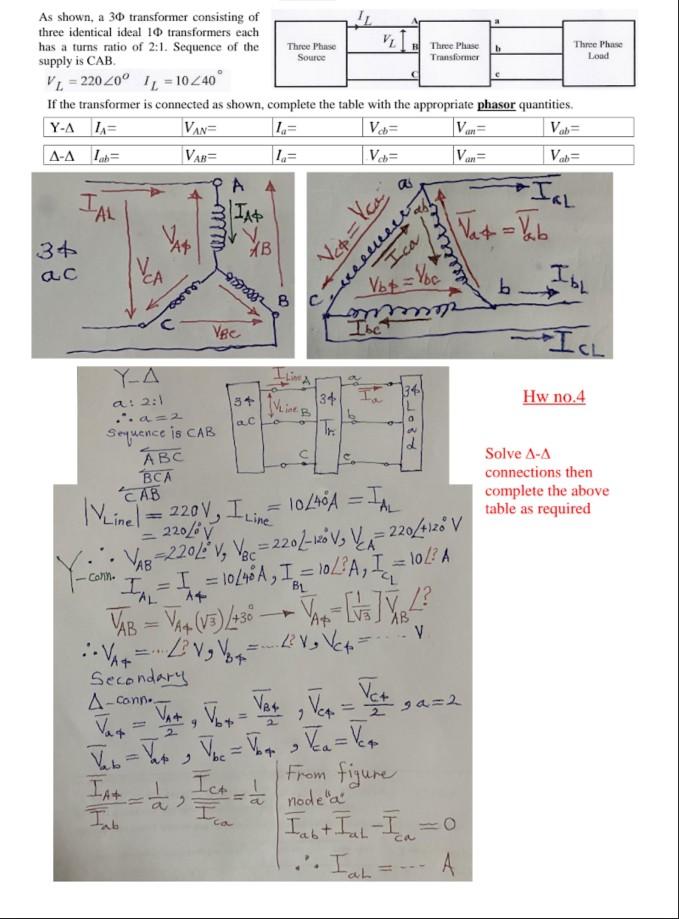 As shown, a 3Φ transformer consisting of
three identical ideal 1Φ transformers each
has a turns ratio of 2:1. Sequence of the
supply is CAB.
V_L = 220∠0° I_L = 10∠40°
I_L
V_L
A
B
C
Three Phase
Source
Three Phase
Transformer
a
b
c
Three Phase
Load
If the transformer is connected as shown, complete the table with the appropriate phasor quantities.
Y-Δ I_A= V_AN= I_a= V_cb= V_an= V_ab=
Δ-Δ I_ab= V_AB= I_a= V_cb= V_an= V_ab=
3Φ
ac
I_AL
A
I_AΦ
V_AΦ
V_AB
V_CA
B
C
V_BC
a
I_aL
V_cΦ = V_ca
I_ca
V_aΦ = V_ab
V_bΦ = V_bc
b
I_bL
C
I_bc
I_CL
Y-Δ
a: 2:1
∴ a = 2
Sequence is CAB
ABC
BCA
CAB
3Φ
ac
I_Line
V_Line
A
B
C
3Φ
Tr.
a
b
c
I_a
3Φ
Load
Hw no.4
Solve Δ-Δ
connections then
complete the above
table as required
|V_Line| = 220V, I_Line = 10∠40°A = I_AL
= 220∠0° V
∴ V_AB = 220∠0° V, V_BC = 220∠-120° V, V_CA = 220∠+120° V
Y-conn. I_AL = I_AΦ = 10∠40°A, I_BL = 10∠? A, I_CL = 10∠? A
V_AB = V_AΦ (√3) ∠+30° → V_AΦ = [1/√3] V_AB ∠?
∴ V_AΦ = ... ∠? V, V_BΦ = ... ∠? V, V_CΦ = ..... V
Secondary
Δ-conn.
V_aΦ = V_AΦ/2, V_bΦ = V_BΦ/2, V_cΦ = V_CΦ/2, a=2
V_ab = V_aΦ, V_bc = V_bΦ, V_ca = V_cΦ
I_AΦ/I_ab = 1/a, I_CΦ/I_ca = 1/a
From figure
node "a"
I_ab + I_aL - I_ca = 0
∴ I_aL = --- A